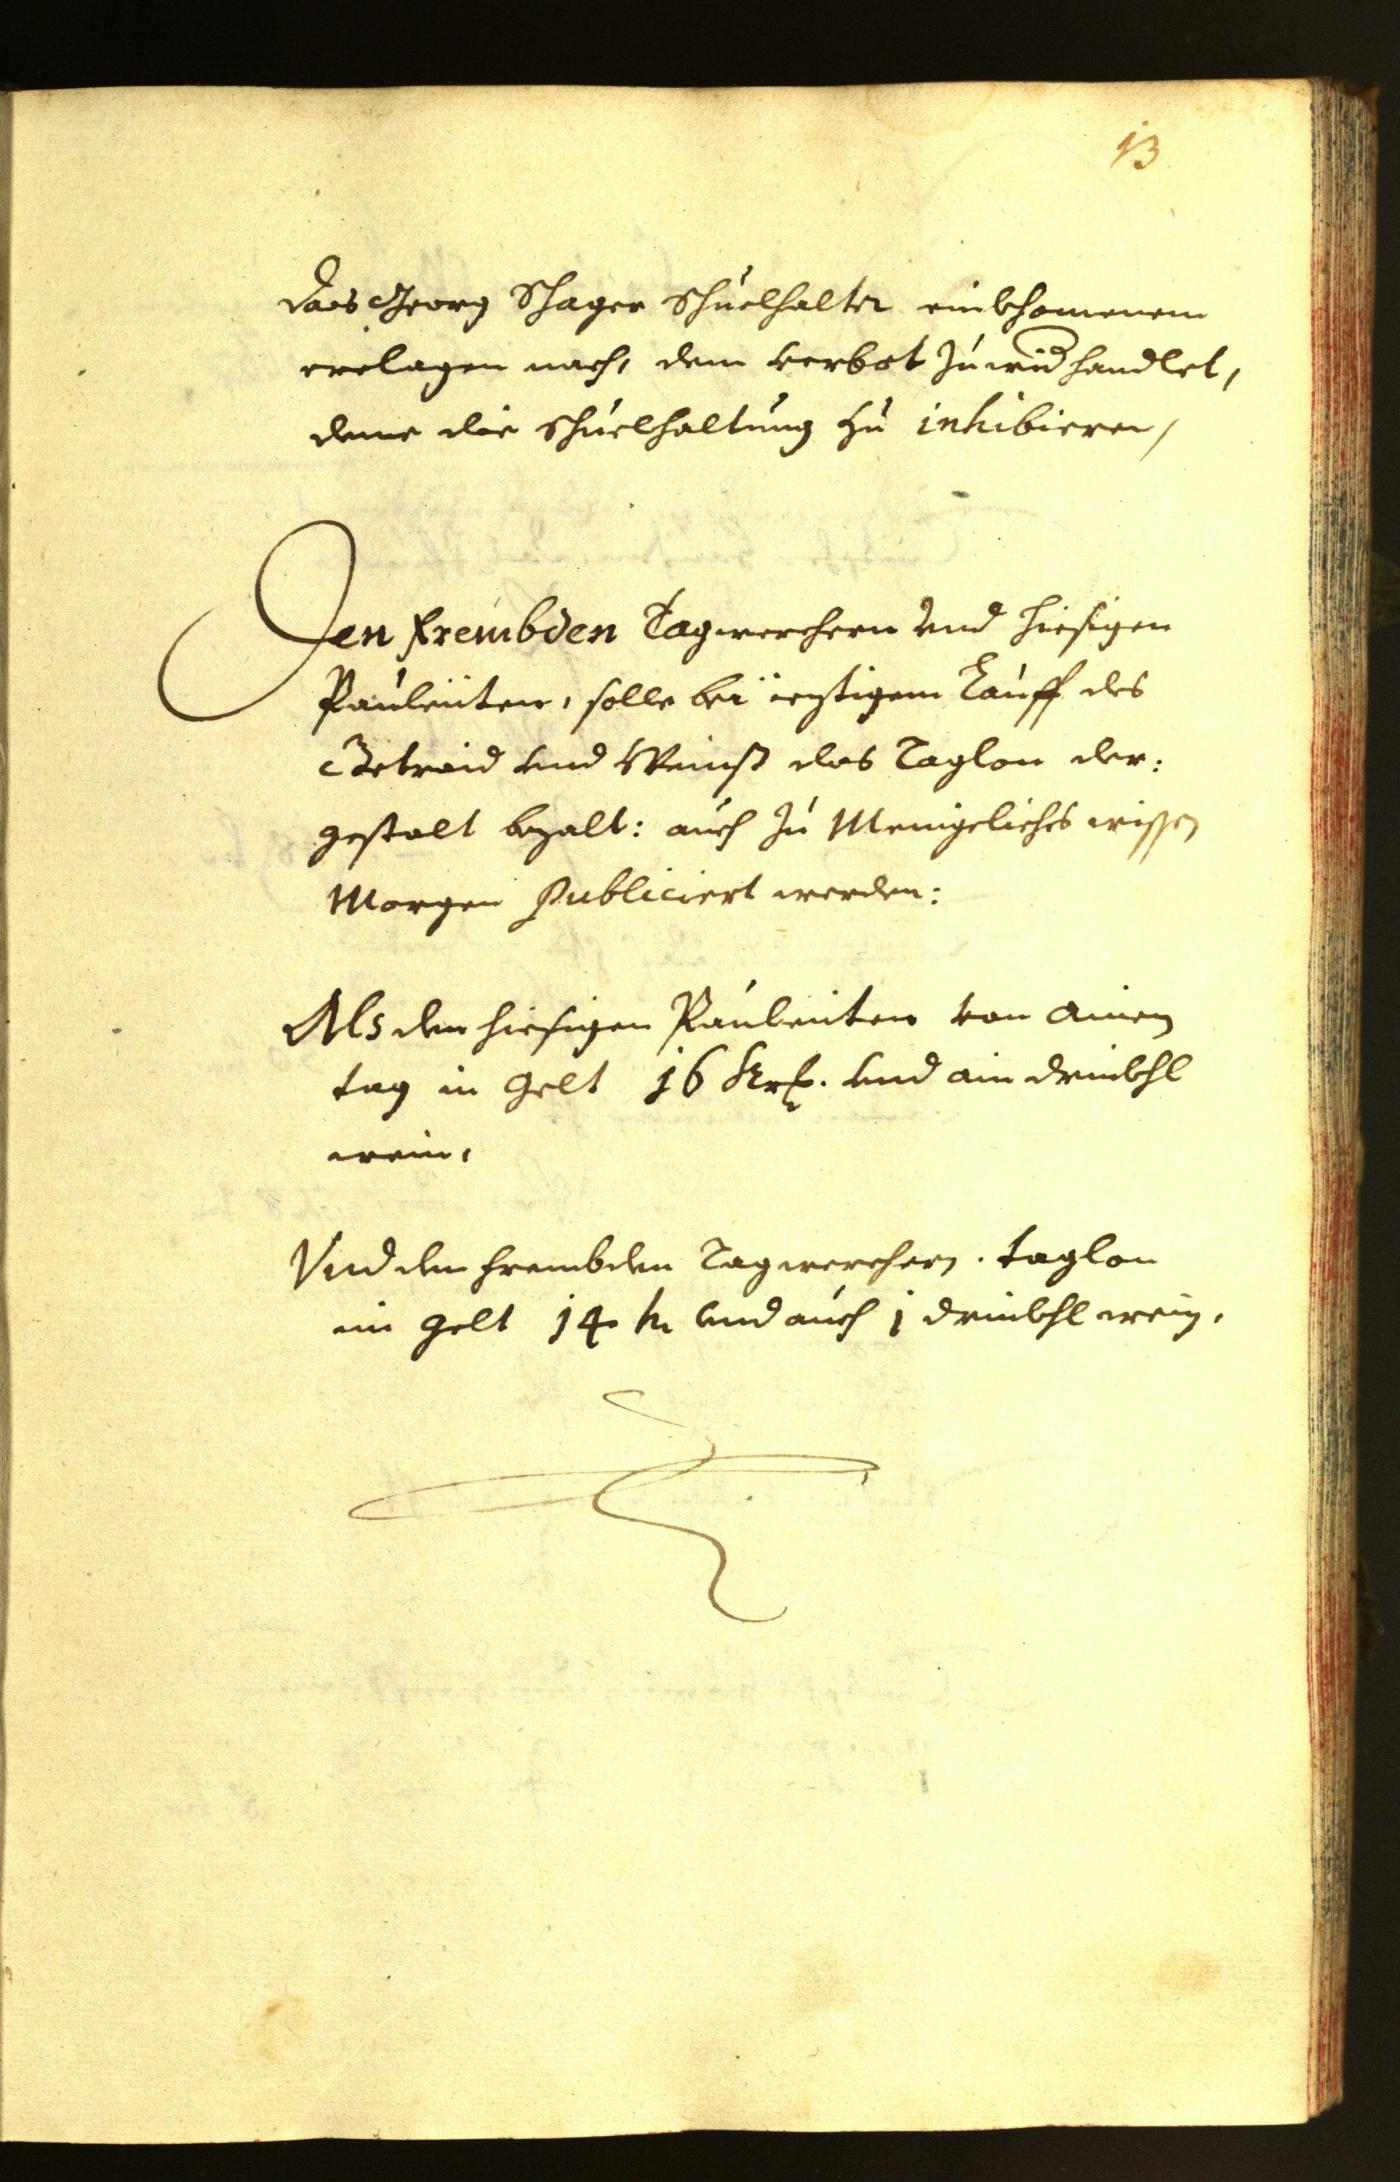 13
das Georg Schager Schuelhalter einkhomenem
erclagen nach, dem verbot zuwid handlet,
deme die Schuelhaltung zu inhibieren,
Den frembden Tagwerchern und hiesigen
Pauleüten, solle bei ieztigem Kauff des
Getraid und Weinß das Taglon der:
gestalt bezalt: auch zu Menigeliches wissen
Morgen Publiciert werden:
Als den hiesigen Pauleüten von ainem
tag in gelt 16 Krz. und ain drinkhl
wein.
Und den frembden Tagwerchern. taglon
in gelt 14 kr und auch 1 drinkhl wein.